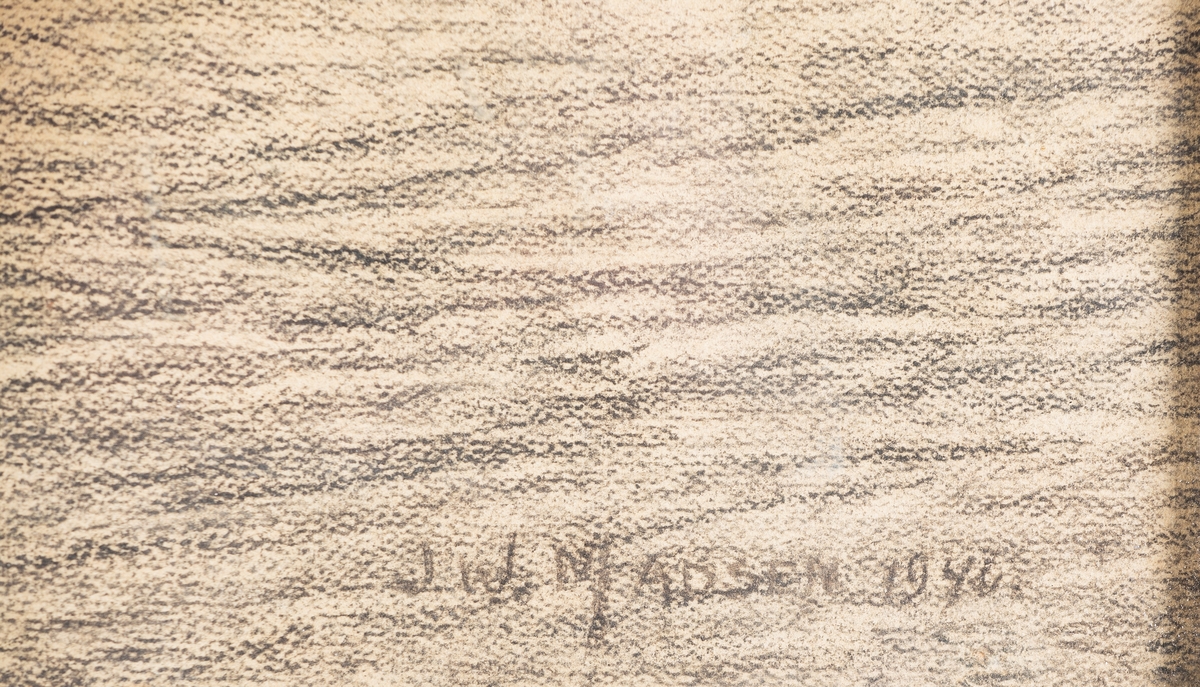 J W MADSEN 1940.